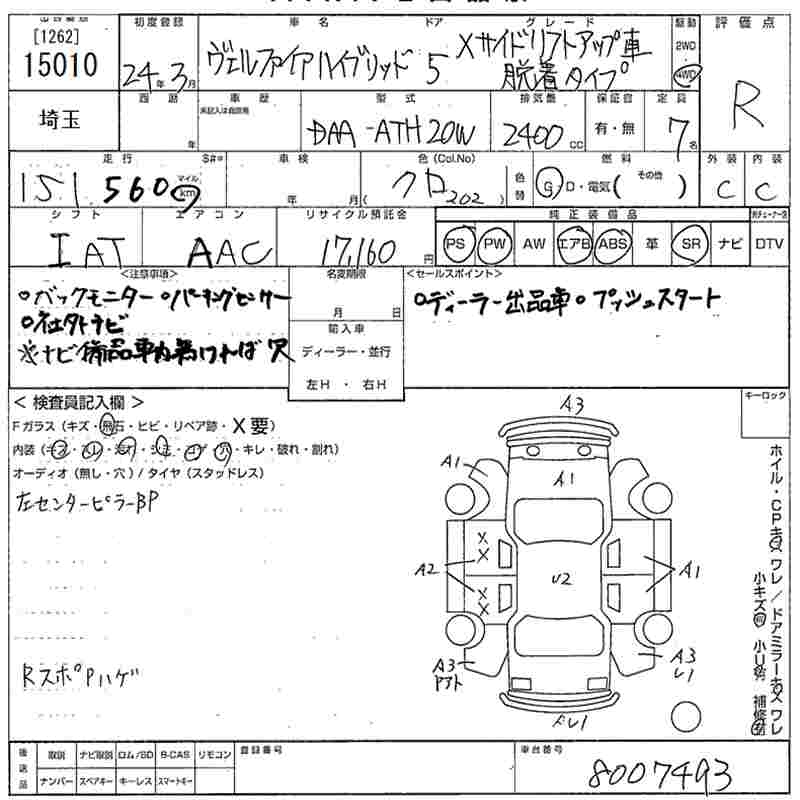 出品番号 初度登録 車名 ドア グレード 駆動 評価点
[1262]
15010
24年3月 ヴェルファイアハイブリッド 5 Xサイドリフトアップ車
脱着タイプ
2WD
4WD
R
埼玉 西暦 年 車歴 未記入は自家用 型式 DAA-ATH20W 排気量 2400cc 保証書 有・無 定員 7名
走行 S#* 車検 色(Col.No) 色替 燃料 外装 内装
151560 マイル km 年 月 クロ(202) G・D・電気( その他 ) C C
シフト エアコン リサイクル預託金 純正装備品
IAT AAC 17,160円 PS PW AW エアB ABS 革 SR ナビ DTV
<注意事項> 名変期限 <セールスポイント>
○バックモニター○パーキングセンサー
○社外ナビ
※ナビ備品車内無ければ欠
月 日
輸入車
ディーラー・並行
左H・右H
○ディーラー出品車○プッシュスタート
<検査員記入欄> キーロック
Fガラス(キズ・飛石・ヒビ・リペア跡・X要)
内装(キズ・スレ・汚れ・シミ・コゲ・穴・キレ・破れ・割れ)
オーディオ(無し・穴)/タイヤ(スタッドレス)
左センターピラーBP
RスポPハゲ
A3
A1 A1
X
X
A2 U2 A1
X
X
A3
アト
A3
U1
AU1
ホイル・CPキズ ワレ/ドアミラーキズ ワレ
小キズ有 小U有 補修有
後送品 取説 ナビ取説 ロム/SD B-CAS リモコン 登録番号 車台番号
ナンバー スペアキー キーレス スマートキー 8007493